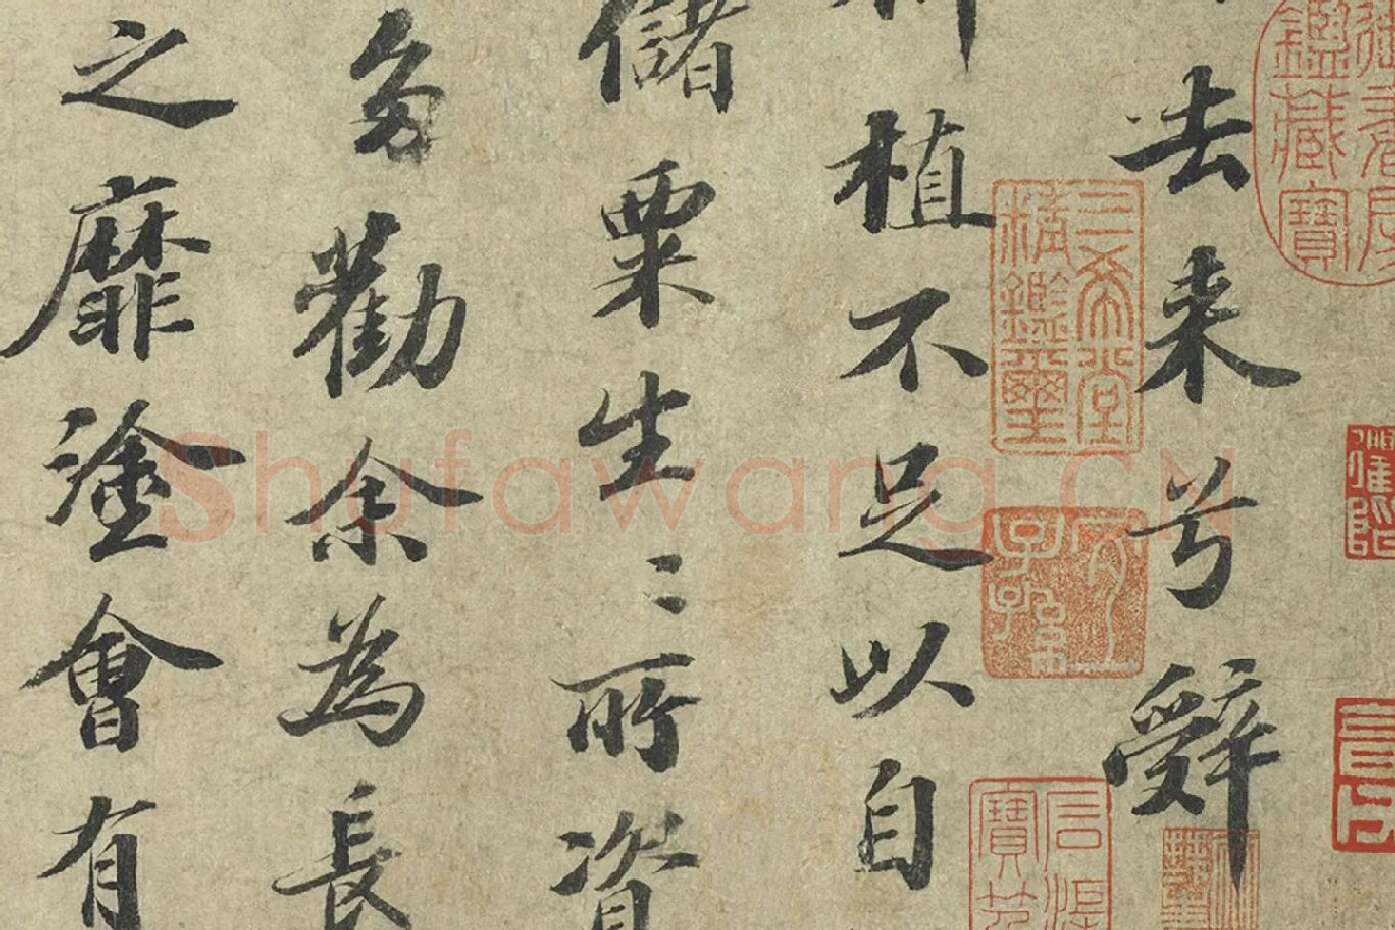 去来兮辤
耕植不足以自
儲粟生〻所資
多勸余為長
之靡塗會有
三希堂
精鑑璽
鑑藏寶
宜子孫
Shufawang.CN